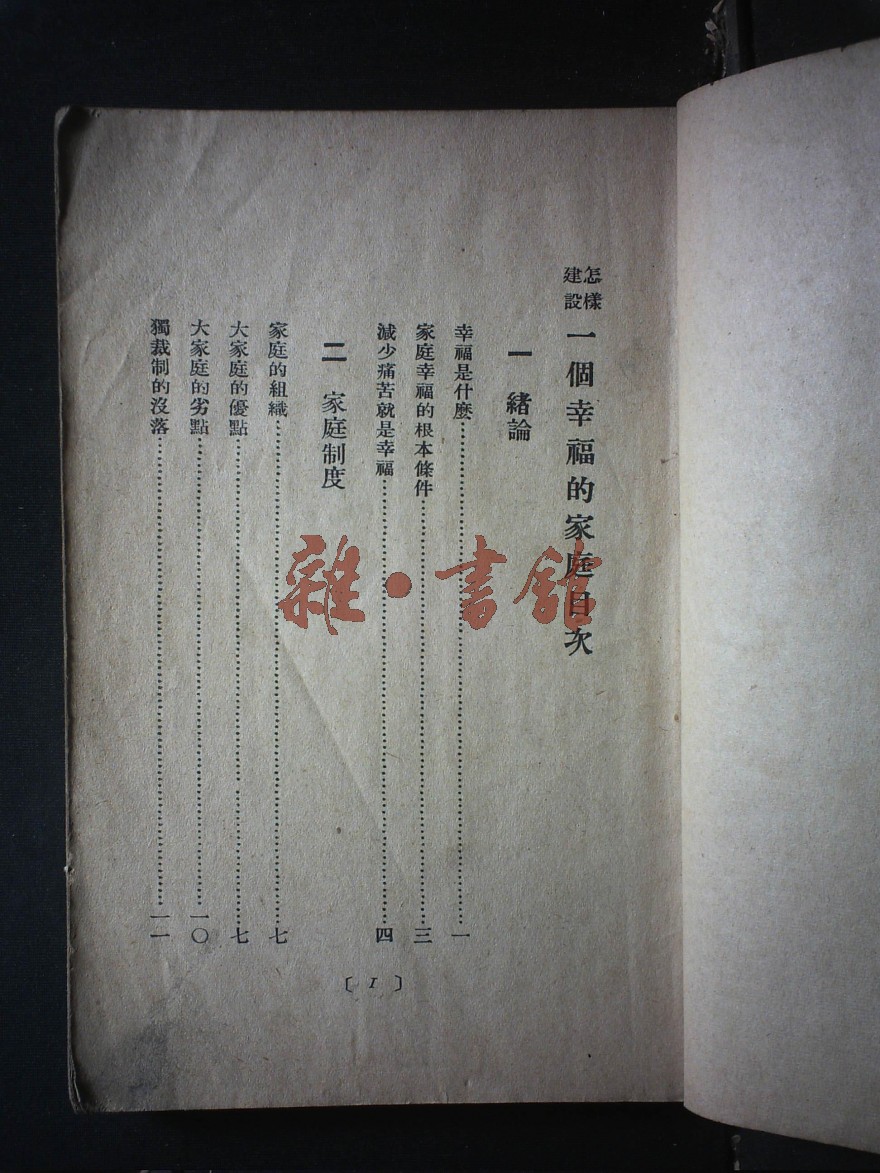 怎樣建設一個幸福的家庭目次
一 緒論
幸福是什麼……一
家庭幸福的根本條件……三
減少痛苦就是幸福……四
二 家庭制度
家庭的組織……七
大家庭的優點……七
大家庭的劣點……一〇
獨裁制的沒落……一一
〔 I 〕
雜·書館